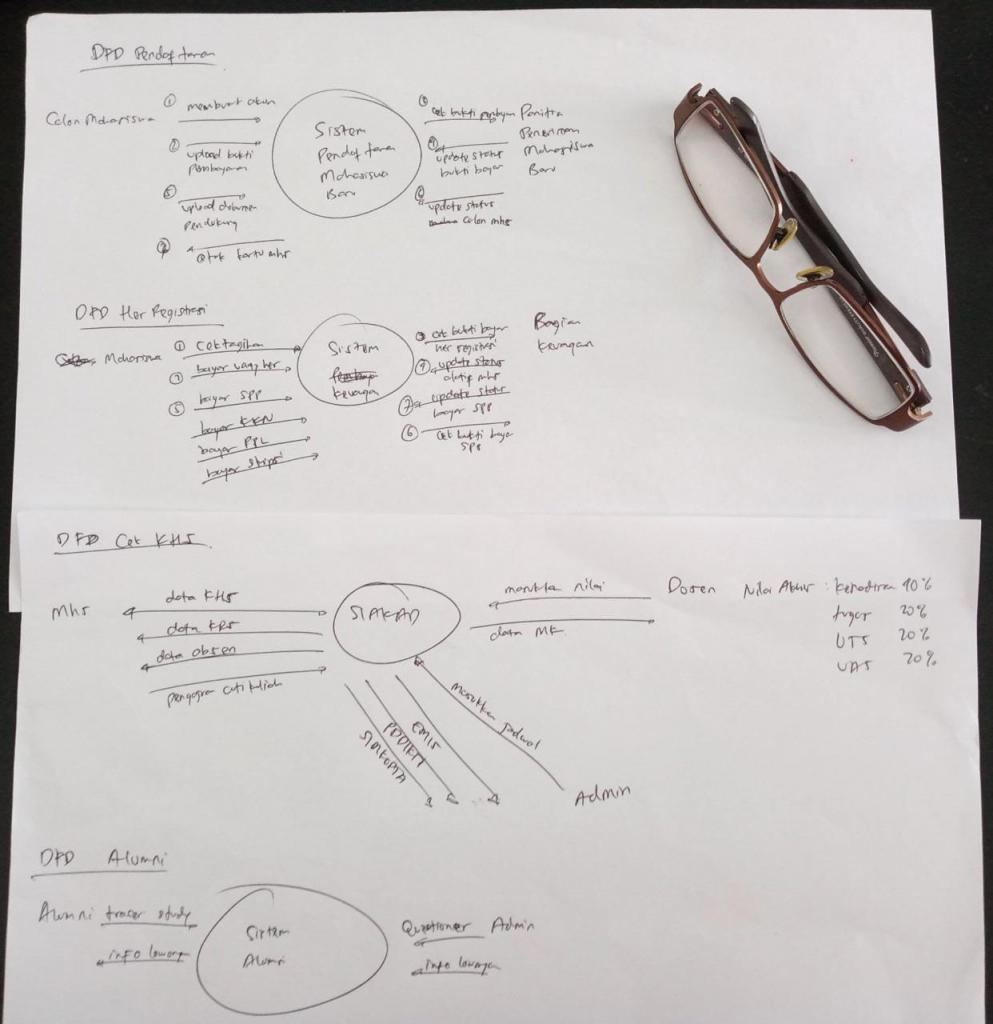 DFD Pendaftaran
Calon Mahasiswa
① membuat akun
② upload bukti
pembayaran
⑤ upload dokumen
pendukung
⑦ cetak kartu mhs
Sistem
Pendaftaran
Mahasiswa
Baru
③ cek bukti
Panitia
Penerimaan
Mahasiswa
Baru
④ update status
bukti bayar
⑥ update status
calon mhs
DFD Her Registrasi
Mahasiswa
① cek tagihan
② bayar uang her
⑤ bayar SPP
bayar KKN
bayar PPL
bayar skripsi
Sistem
keuangan
③ cek bukti bayar
her registrasi
④ update status
aktif mhs
⑦ update status
bayar SPP
⑥ cek bukti bayar
SPP
Bagian
keuangan
DFD Cek KHS
Mhs
data KHS
data KRS
data absen
cuti kuliah
SIAKAD
masukkan nilai
data MK
Dosen
Nilai Akhir : kehadiran 40%
tugas 20%
UTS 20%
UAS 20%
masukkan jadwal
Admin
EMIS
PDDIKTI
DFD Alumni
Alumni
tracer study
info lowongan
Sistem
Alumni
Questioner
Admin
info lowongan